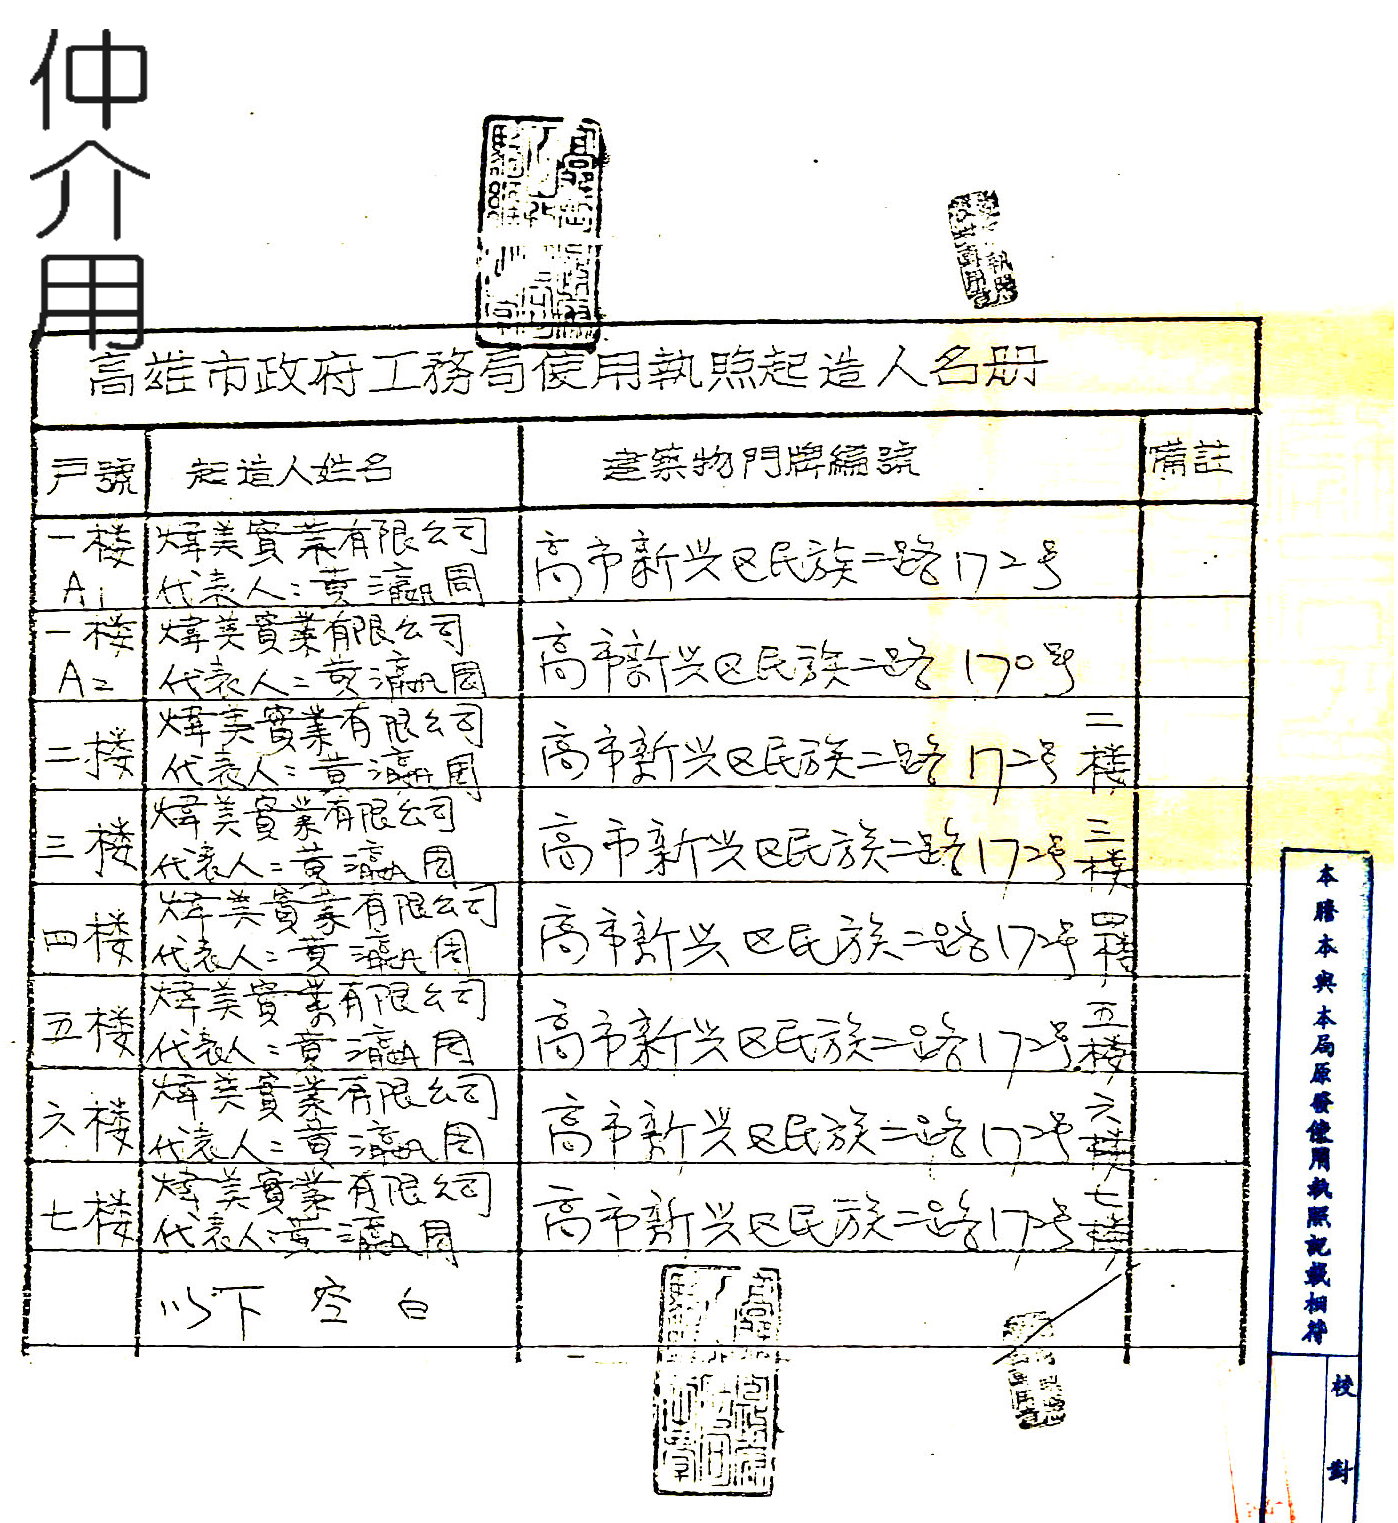 仲介用
高雄市政府工務局使用執照起造人名册
戸號 起造人姓名 建築物門牌編號 備註
一楼 煒美實業有限公司
A1 代表人:黄瀛周 高市新兴区民族二路172号
一楼 煒美實業有限公司
A2 代表人:黄瀛周 高市新兴区民族二路170号
二楼 煒美實業有限公司
代表人:黄瀛周 高市新兴区民族二路172号二楼
三楼 煒美實業有限公司
代表人:黄瀛周 高市新兴区民族二路172号三楼
四楼 煒美實業有限公司
代表人:黄瀛周 高市新兴区民族二路172号四楼
五楼 煒美實業有限公司
代表人:黄瀛周 高市新兴区民族二路172号五楼
六楼 煒美實業有限公司
代表人:黄瀛周 高市新兴区民族二路172号六楼
七楼 煒美實業有限公司
代表人:黄瀛周 高市新兴区民族二路172号七楼
以下空白
本謄本與本局原發使用執照記載相符
校對